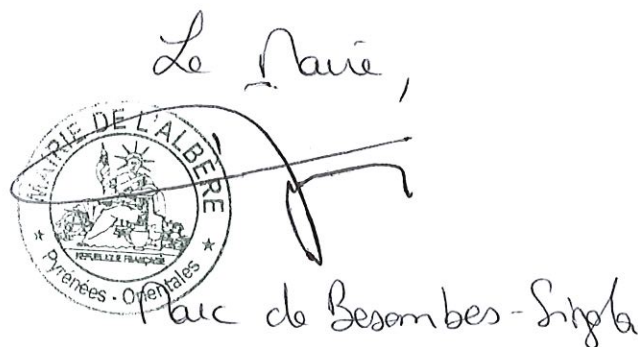 Le Maire,
MAIRIE DE L'ALBÈRE
RÉPUBLIQUE FRANÇAISE
* Pyrénées - Orientales *
Marc de Besombes-Singla